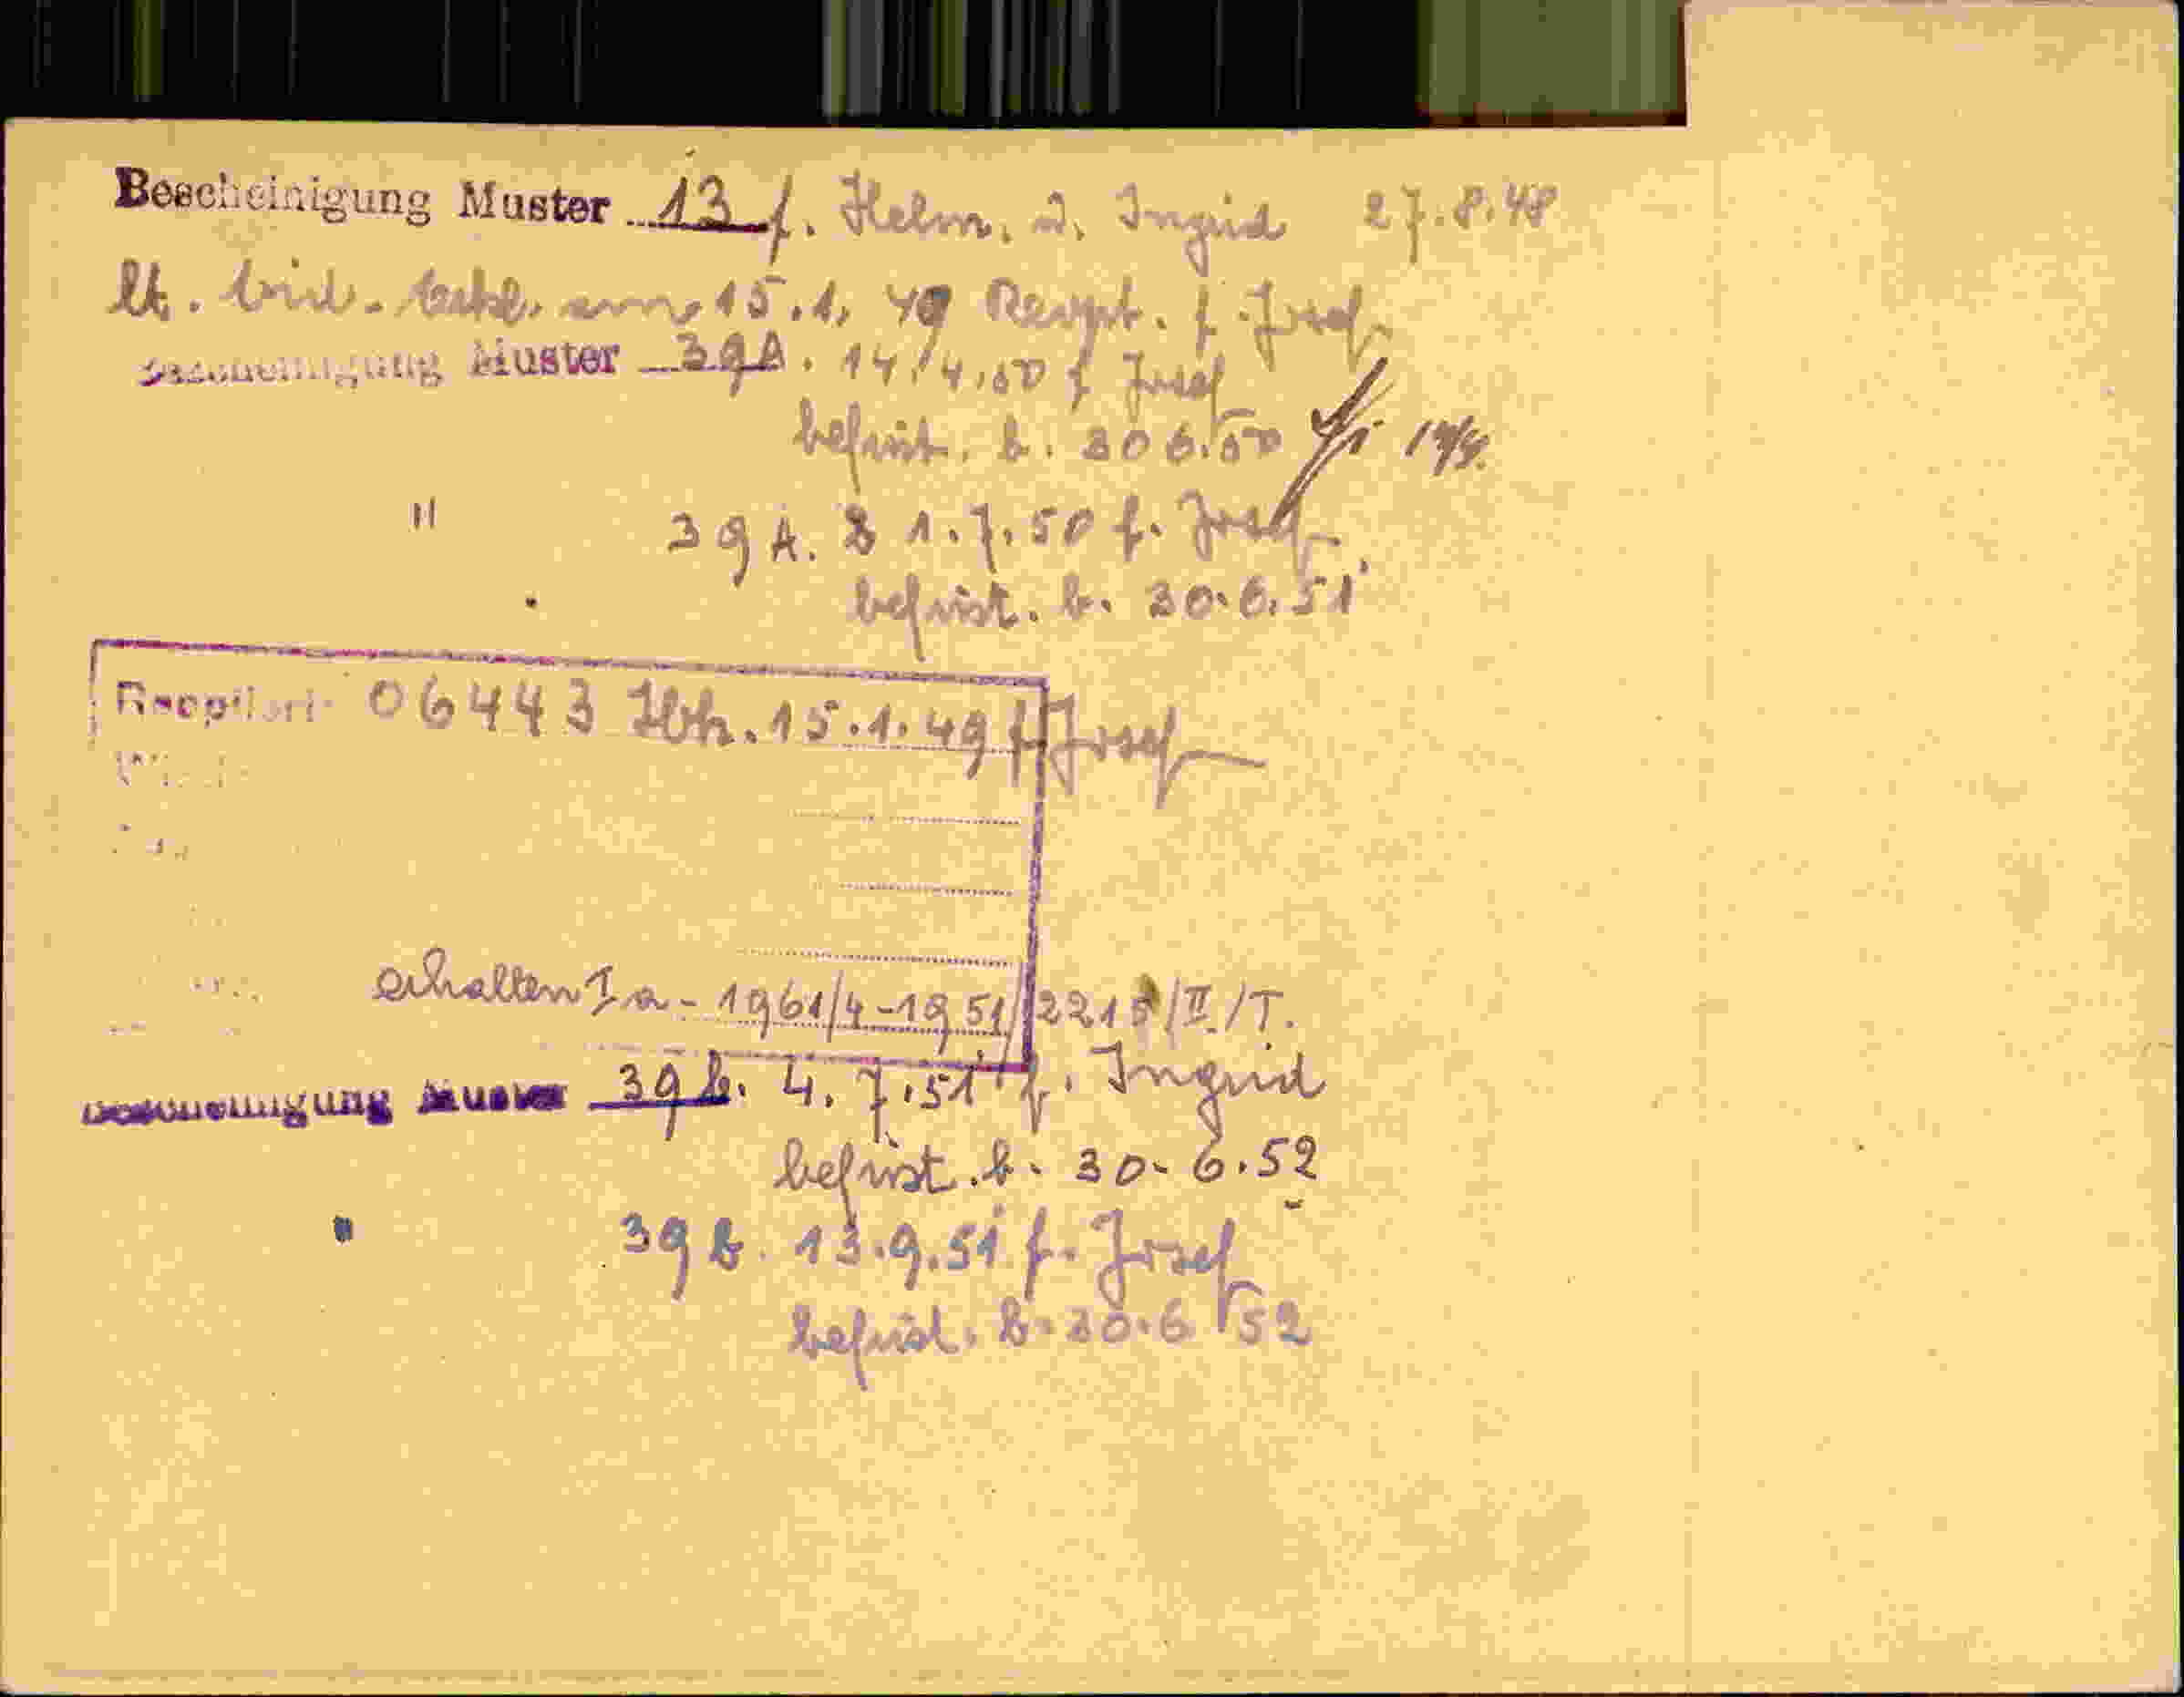 Bescheinigung Muster 13 f. Helm. u. Ingrid 27.8.48
lt. am 15.1.49 Rezept. f. Josef
Bescheinigung Muster 39A. 14.4.50 f Josef
befrist. b. 30 6.50
" 39 A. 1.7.50 f. Josef
befrist. b. 30.6.51
06443 15.1.49 f Josef
erhalten I a - 1961/4-1951/2215/II/T.
Bescheinigung Muster 39 b. 4.7.51 f. Ingrid
befrist. b. 30.6.52
" 39 b. 13.9.51 f. Josef
befrist. b. 30.6.52